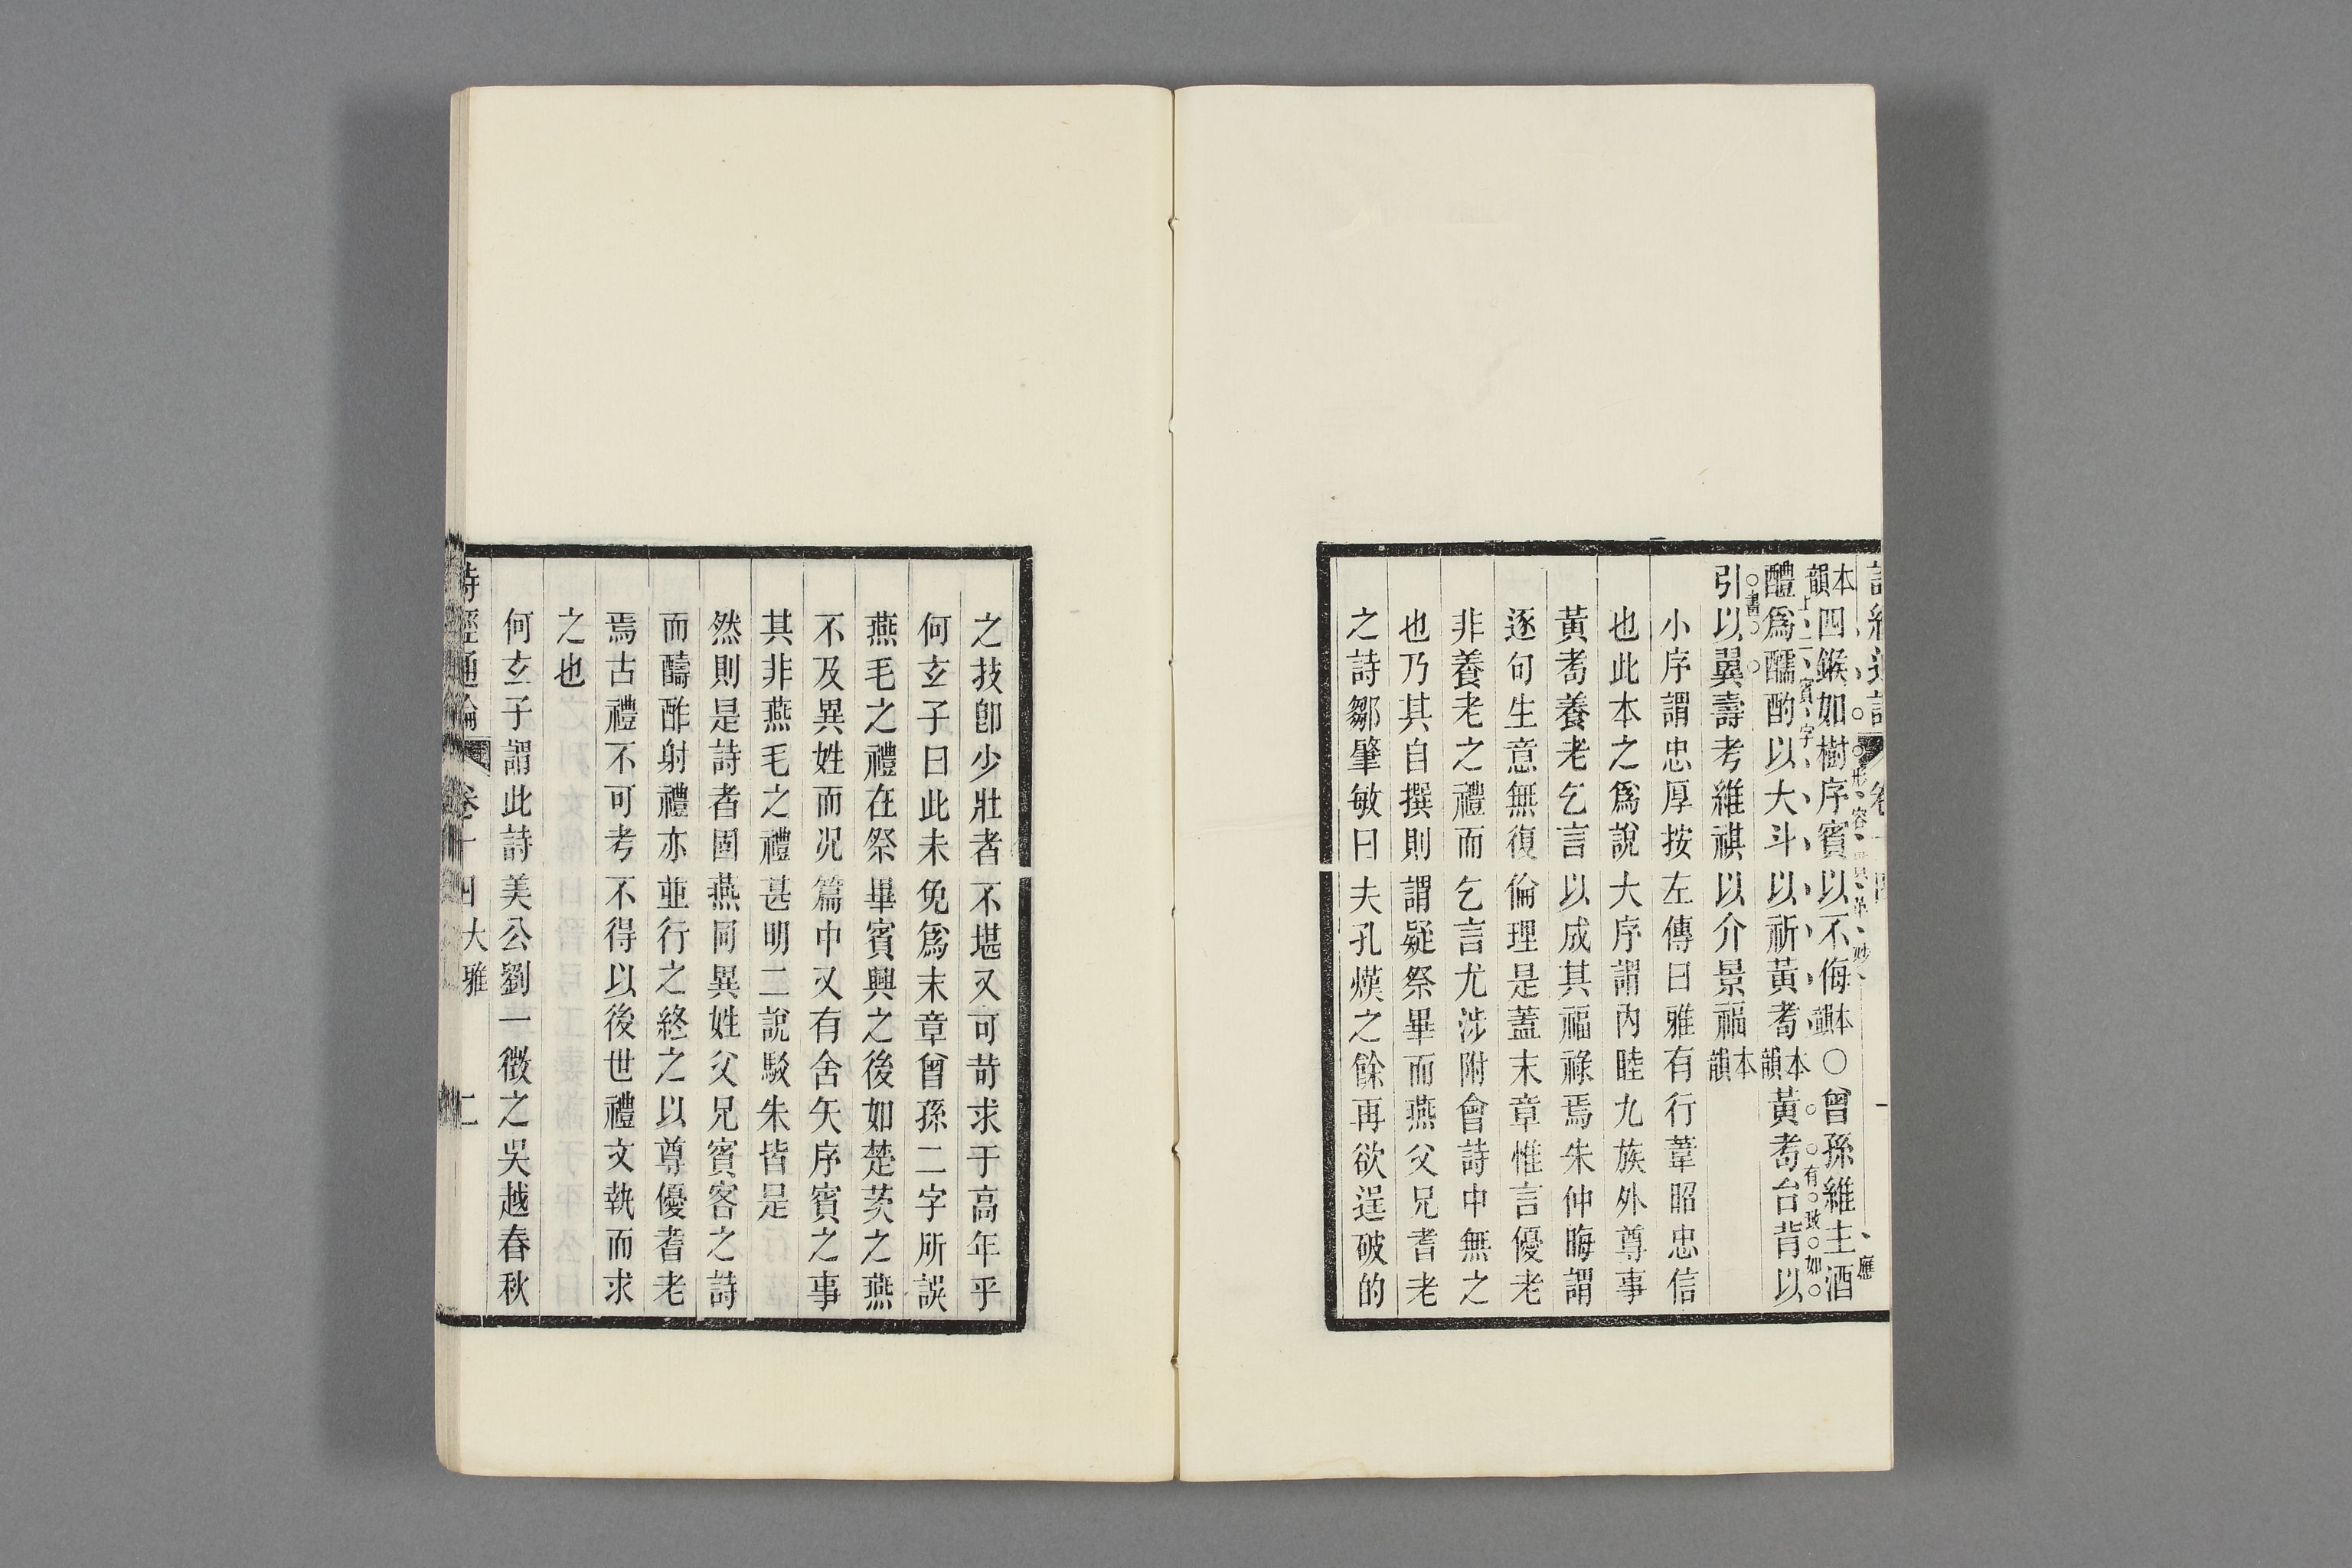 本韻四鍭如樹序賓以不侮本韻○曾孫維主酒
醴爲醹酌以大斗以祈黃耇本韻黃耇台背以
引以翼壽考維祺以介景福本韻
小序謂忠厚按左傳曰雅有行葦昭忠信
也此本之爲說大序謂內睦九族外尊事
黃耇養老乞言以成其福祿焉朱仲晦謂
逐句生意無復倫理是蓋末章惟言優老
非養老之禮而乞言尤涉附會詩中無之
也乃其自撰則謂疑祭畢而燕父兄耆老
之詩鄒肇敏曰夫孔熯之餘再欲逞破的
之技卽少壯者不堪又可苛求于高年乎
何玄子曰此未免爲末章曾孫二字所誤
燕毛之禮在祭畢賓興之後如楚茨之燕
不及異姓而况篇中又有舍矢序賓之事
其非燕毛之禮甚明二說駁朱皆是
然則是詩者固燕同異姓父兄賓客之詩
而醻酢射禮亦並行之終之以尊優耆老
焉古禮不可考不得以後世禮文執而求
之也
何玄子謂此詩美公劉一徵之吳越春秋
詩經通論 卷十四大雅 二